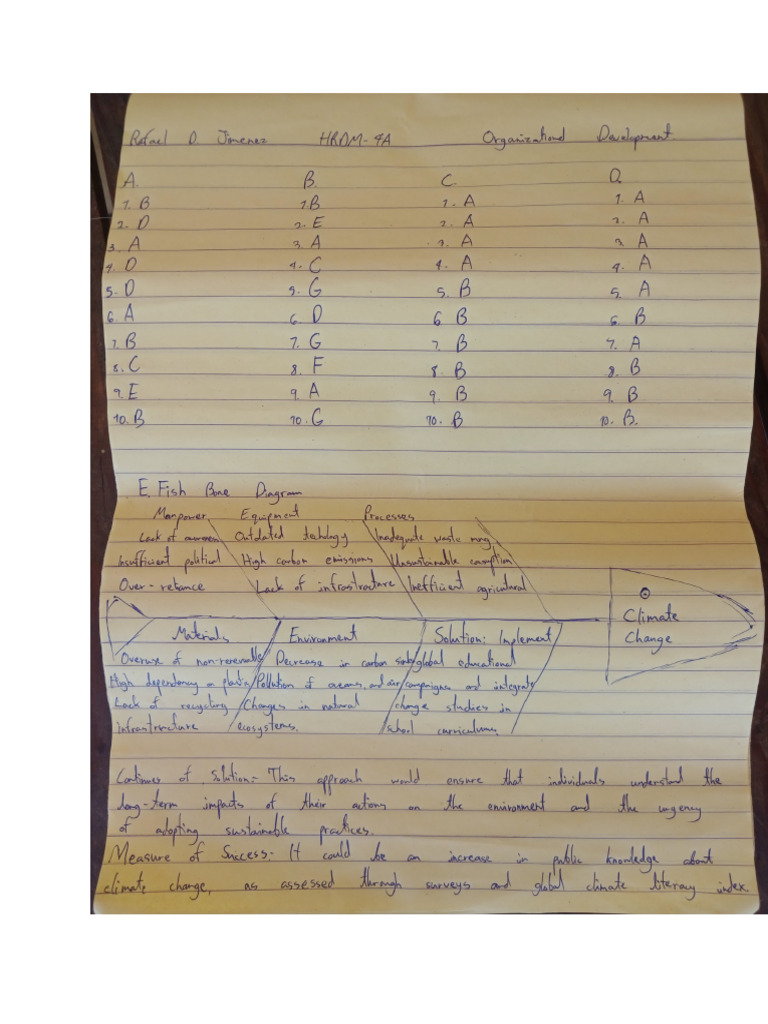 Rafael D. Jimenez HRDM-4A Organizational Development
A. B. C. D.
1. B 1. B 1. A 1. A
2. D 2. E 2. A 2. A
3. A 3. A 3. A 3. A
4. D 4. C 4. A 4. A
5. D 5. G 5. B 5. A
6. A 6. D 6 B 6. B
7. B 7. G 7. B 7. A
8. C 8. F 8. B 8. B
9. E 9. A 9. B 9. B
10. B 10. G 10. B 10. B.
E. Fish Bone Diagram
Manpower Equipment Processes
Lack of awareness Outdated technology Inadequate waste mng.
Insufficient political High carbon emissions Unsustainable
Over-reliance Lack of infrastructure Inefficient agricultural
Climate
Change
Materials Environment Solution: Implement
Overuse of non-renewable Decrease in carbon global educational
High dependency on plastic Pollution of oceans, and air campaigns and integrate
Lack of recycling Changes in natural change studies in
infrastructure ecosystems. school curriculums.
Continues of Solution:- This approach would ensure that individuals understand the
long-term impacts of their actions on the environment and the urgency
of adopting sustainable practices.
Measure of Success:- It could be an increase in public knowledge about
climate change, as assessed through surveys and global climate literacy index